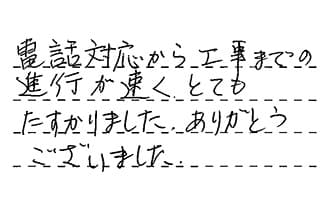 電話対応から工事までの
進行が速く、とても
たすかりました。ありがとう
ございました。